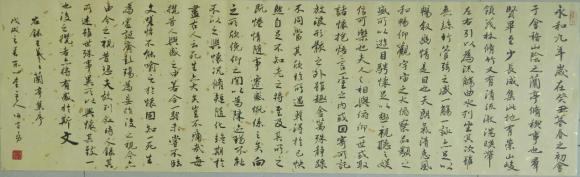 永和九年歲在癸丑暮春之初會
于會稽山陰之蘭亭脩禊事也羣
賢畢至少長咸集此地有崇山峻
領茂林脩竹又有清流激湍暎帶
左右引以為流觴曲水列坐其次雖
無絲竹管弦之盛一觴一詠亦足以
暢敘幽情是日也天朗氣清惠風
和暢仰觀宇宙之大俯察品類之
盛所以遊目騁懷足以極視聽之娛
信可樂也夫人之相與俯仰一世或取
諸懷抱悟言一室之內或因寄所託
放浪形骸之外雖趣舍萬殊靜躁
不同當其欣於所遇暫得於己快
然自足不知老之將至及其所之
既惓情隨事遷感慨係之矣向
之所欣俛仰之間以為陳迹猶不能
不以之興懷況脩短隨化終期於
盡古人云死生亦大矣豈不痛哉每
攬昔人興感之由若合一契未嘗不臨
文嗟悼不能喻之於懷固知死生
為虛誕齊彭殤為妄作後之視今亦
由今之視昔悲夫故列敘時人錄其
所述雖世殊事異所以興懷其致一
也後之攬者亦將有感於斯文
右錄王羲之蘭亭集序
戊戌